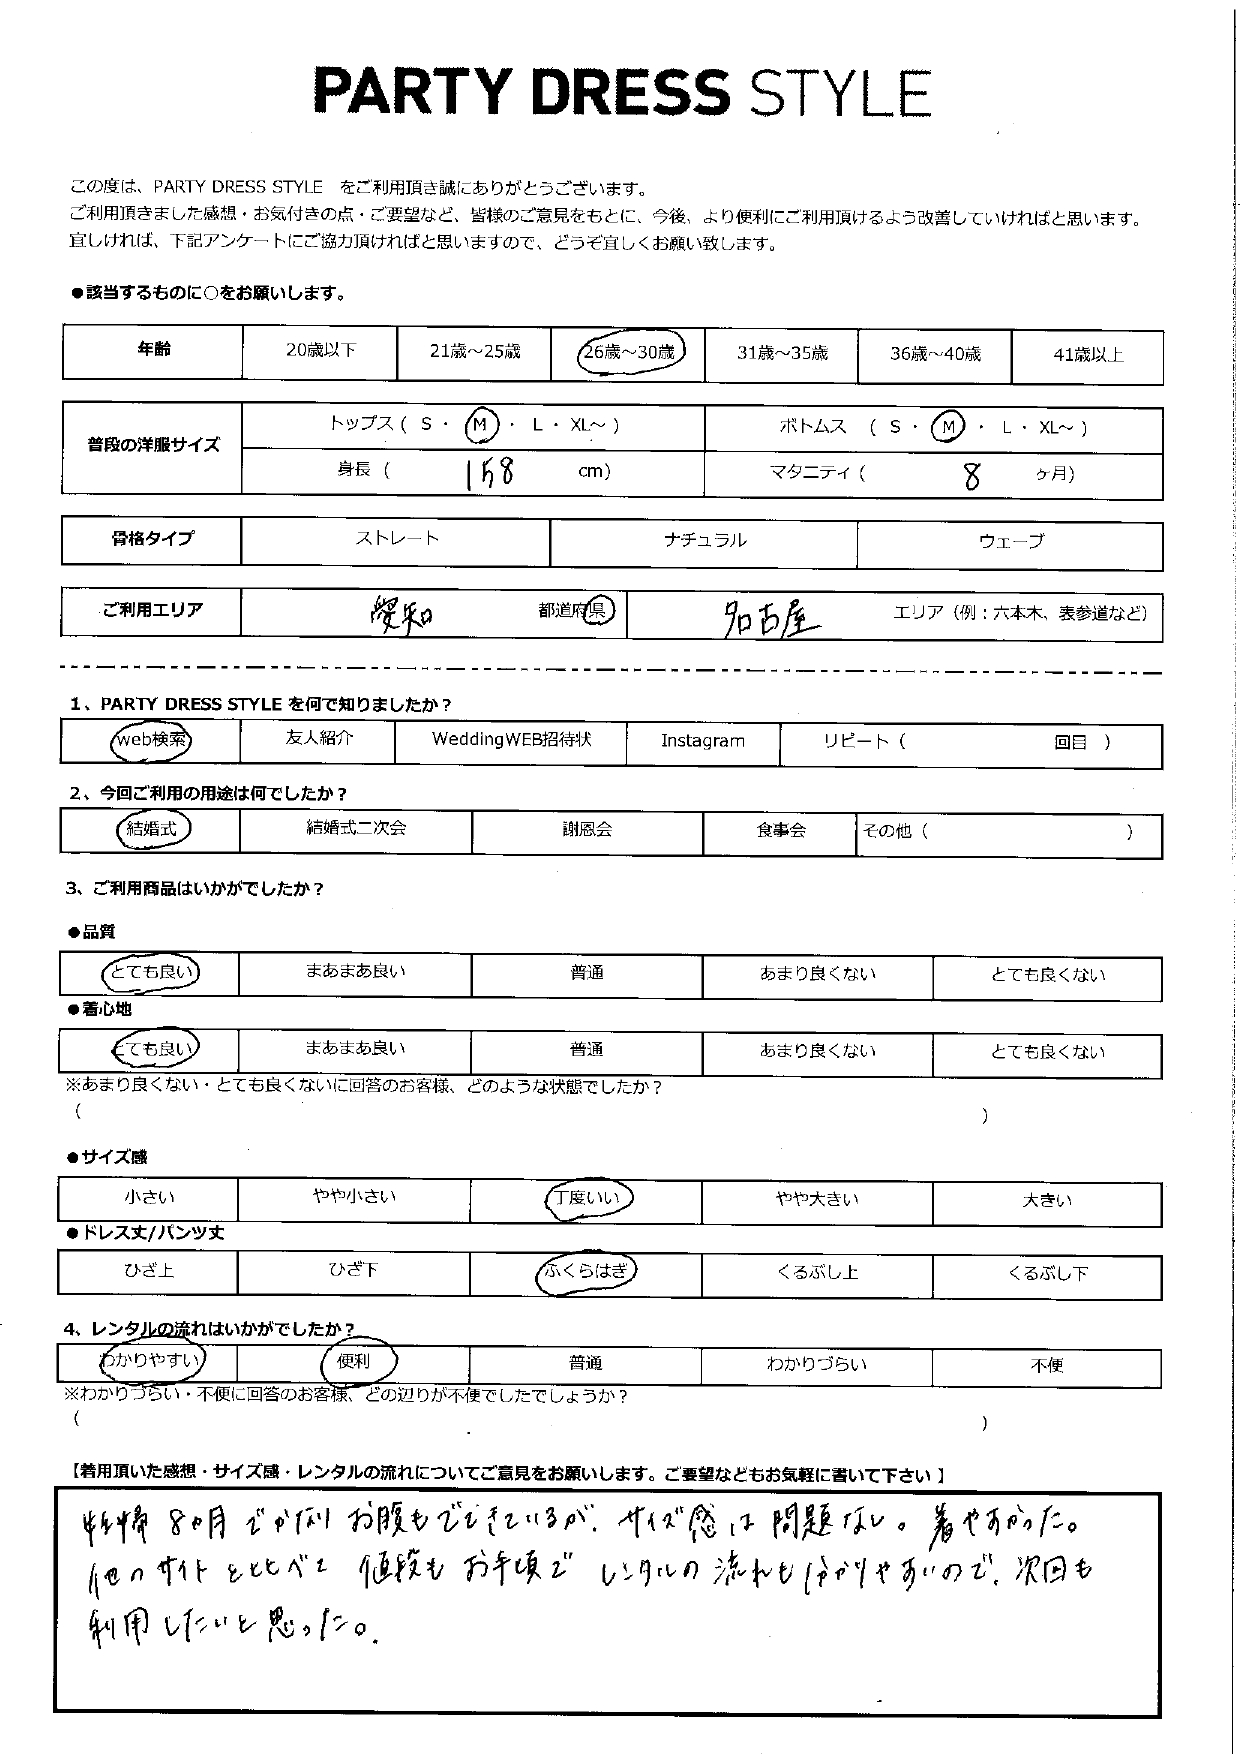 PARTY DRESS STYLE
この度は、PARTY DRESS STYLE　をご利用頂き誠にありがとうございます。
ご利用頂きました感想・お気付きの点・ご要望など、皆様のご意見をもとに、今後、より便利にご利用頂けるよう改善していければと思います。
宜しければ、下記アンケートにご協力頂ければと思いますので、どうぞ宜しくお願い致します。
●該当するものに○をお願いします。
年齢 20歳以下 21歳～25歳 26歳～30歳 31歳～35歳 36歳～40歳 41歳以上
普段の洋服サイズ トップス ( S ・ M ・ L ・ XL～ ) ボトムス ( S ・ M ・ L ・ XL～ )
身長 ( 158 cm) マタニティ ( 8 ヶ月)
骨格タイプ ストレート ナチュラル ウェーブ
ご利用エリア 愛知 都道府県 名古屋 エリア（例：六本木、表参道など）
1、PARTY DRESS STYLE を何で知りましたか？
web検索 友人紹介 WeddingWEB招待状 Instagram リピート ( 回目 )
2、今回ご利用の用途は何でしたか？
結婚式 結婚式二次会 謝恩会 食事会 その他 ( )
3、ご利用商品はいかがでしたか？
●品質
とても良い まあまあ良い 普通 あまり良くない とても良くない
●着心地
とても良い まあまあ良い 普通 あまり良くない とても良くない
※あまり良くない・とても良くないに回答のお客様、どのような状態でしたか？
( )
●サイズ感
小さい やや小さい 丁度いい やや大きい 大きい
●ドレス丈/パンツ丈
ひざ上 ひざ下 ふくらはぎ くるぶし上 くるぶし下
4、レンタルの流れはいかがでしたか？
わかりやすい 便利 普通 わかりづらい 不便
※わかりづらい・不便に回答のお客様、どの辺りが不便でしたでしょうか？
( )
【着用頂いた感想・サイズ感・レンタルの流れについてご意見をお願いします。ご要望などもお気軽に書いて下さい 】
妊婦 8ヶ月でかなりお腹もでてきているが、サイズ感は問題ない。着やすかった。
他のサイトと比べて 値段もお手頃で レンタルの流れも分かりやすいので、次回も
利用したいと思った。